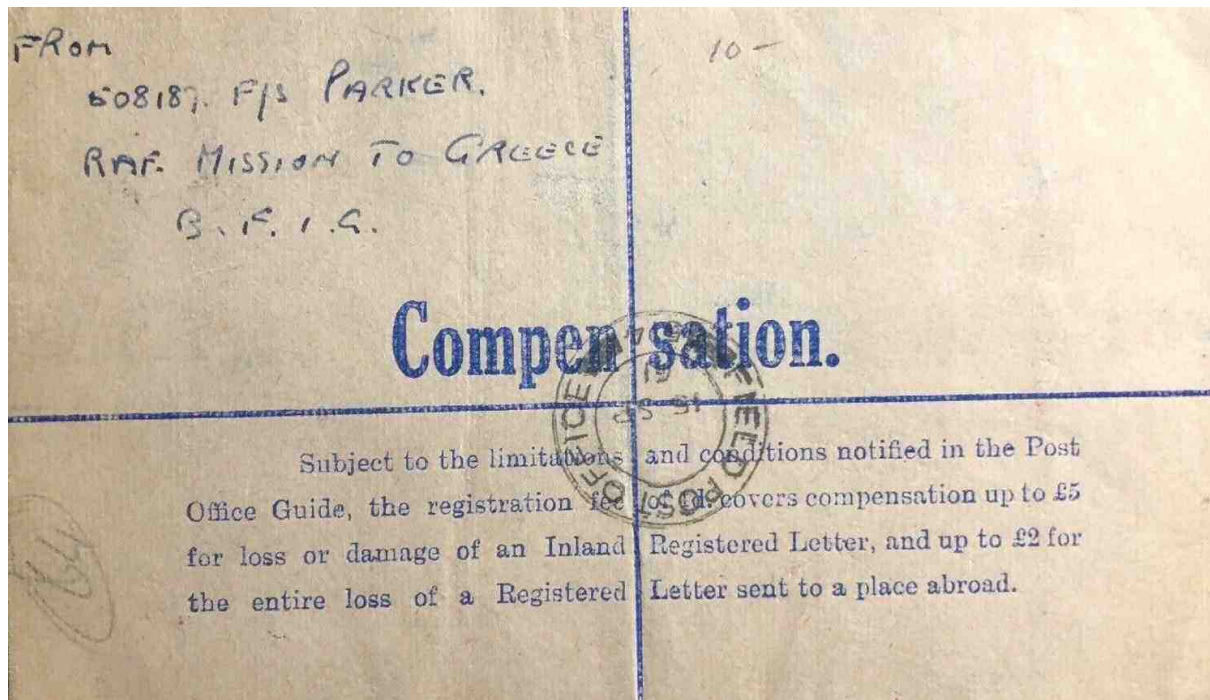 FROM
10 -
508187. F/S PARKER.
RAF. MISSION TO GREECE
B. F. I. G.
Compensation.
FIELD POST OFFICE
15 SP
Subject to the limitations and conditions notified in the Post
Office Guide, the registration fee of 4d. covers compensation up to £5
for loss or damage of an Inland Registered Letter, and up to £2 for
the entire loss of a Registered Letter sent to a place abroad.